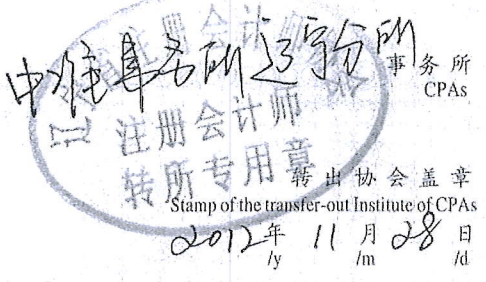 中准事务所辽宁分所
事务所
CPAs
注册会计师
转所专用章
转出协会盖章
Stamp of the transfer-out Institute of CPAs
2012年 11月 28日
/y /m /d